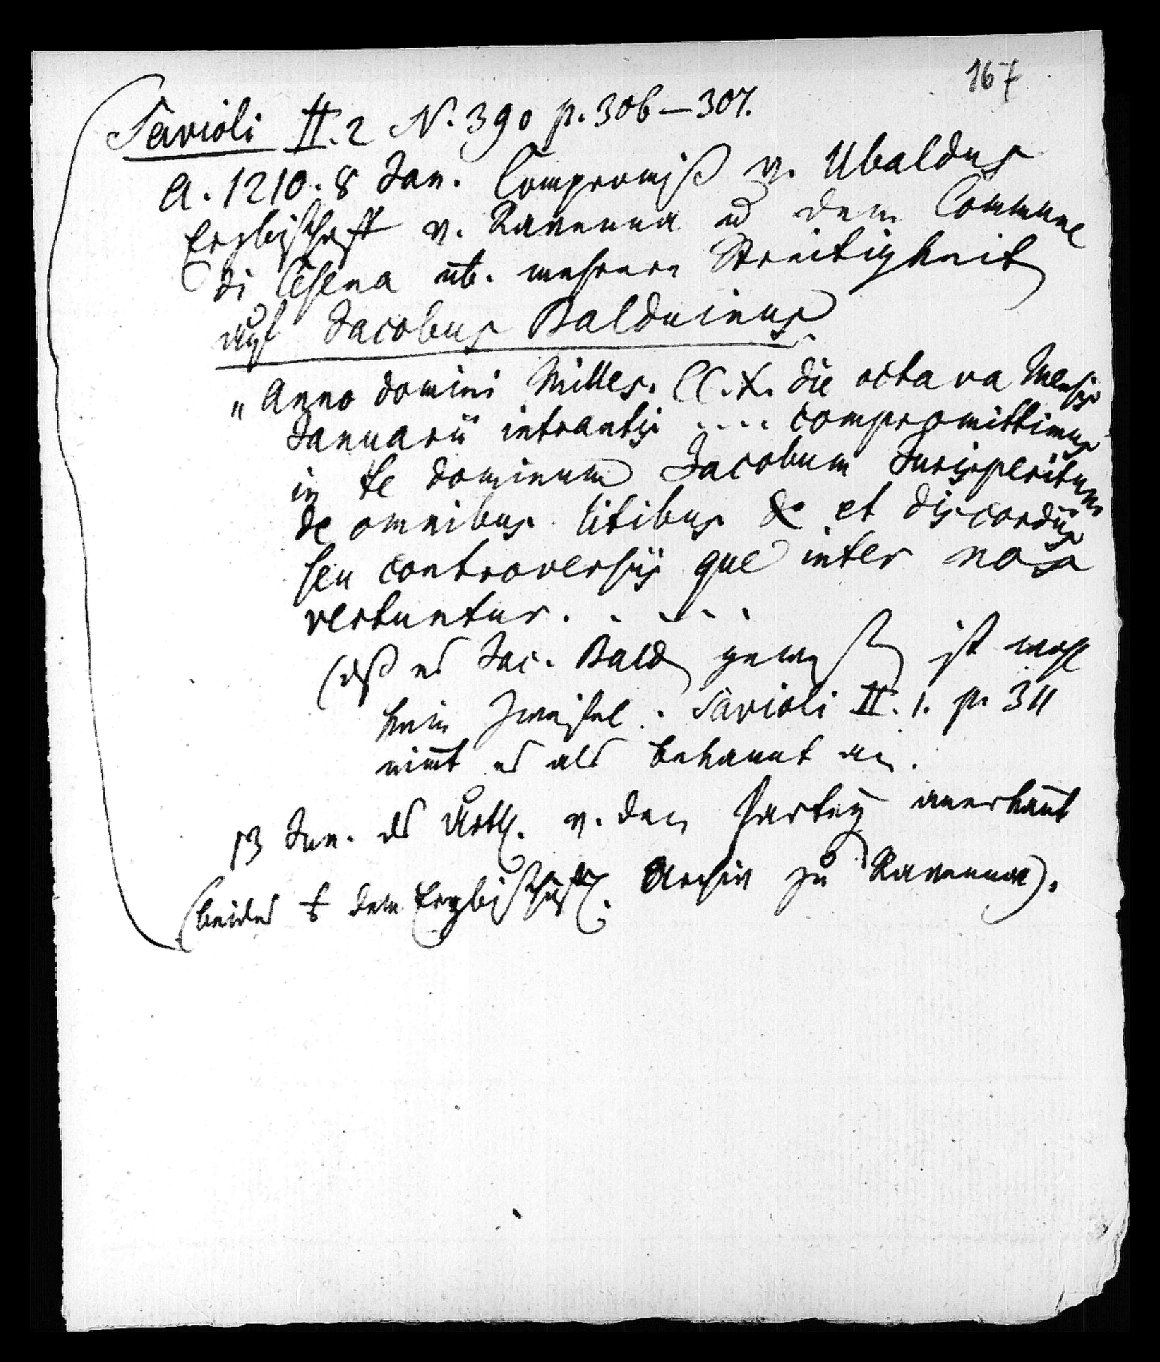 167
Savioli II. 2 N. 390 p. 306–307.
A. 1210. 8 Jan. Compromiß v. Ubaldus
Erzbischoff v. Ravenna u dem Commune
di Cesena üb. mehrere Streitigkeit
auf Jacobus Balduinus
"Anno domini Milles. CC. X. die octava Mensis
Januarii intrantis .... compromittimus
in te dominum Jacobum Jurisperitum
de omnibus litibus et discordiis
seu controversiis que inter nos
vertuntur. . . . .
(dß es Jac. Bald gewesen ist wohl
kein Zweifel. Savioli II. 1. p. 311
nimt es als bekannt an.
13 Jan. ds Urth. v. den Parteyen anerkannt
(beides dem Erzbischöfl. Archiv zu Ravenna).